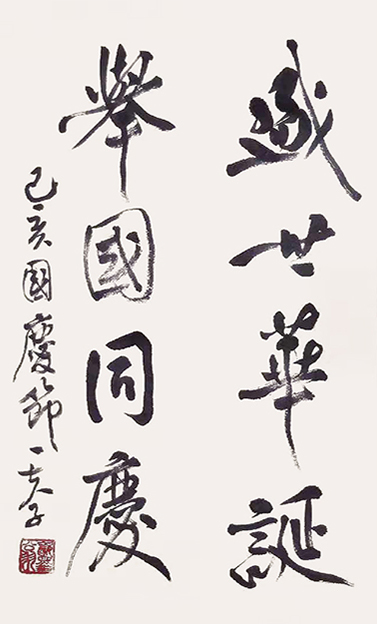 盛世華誕
舉國同慶
己亥國慶節